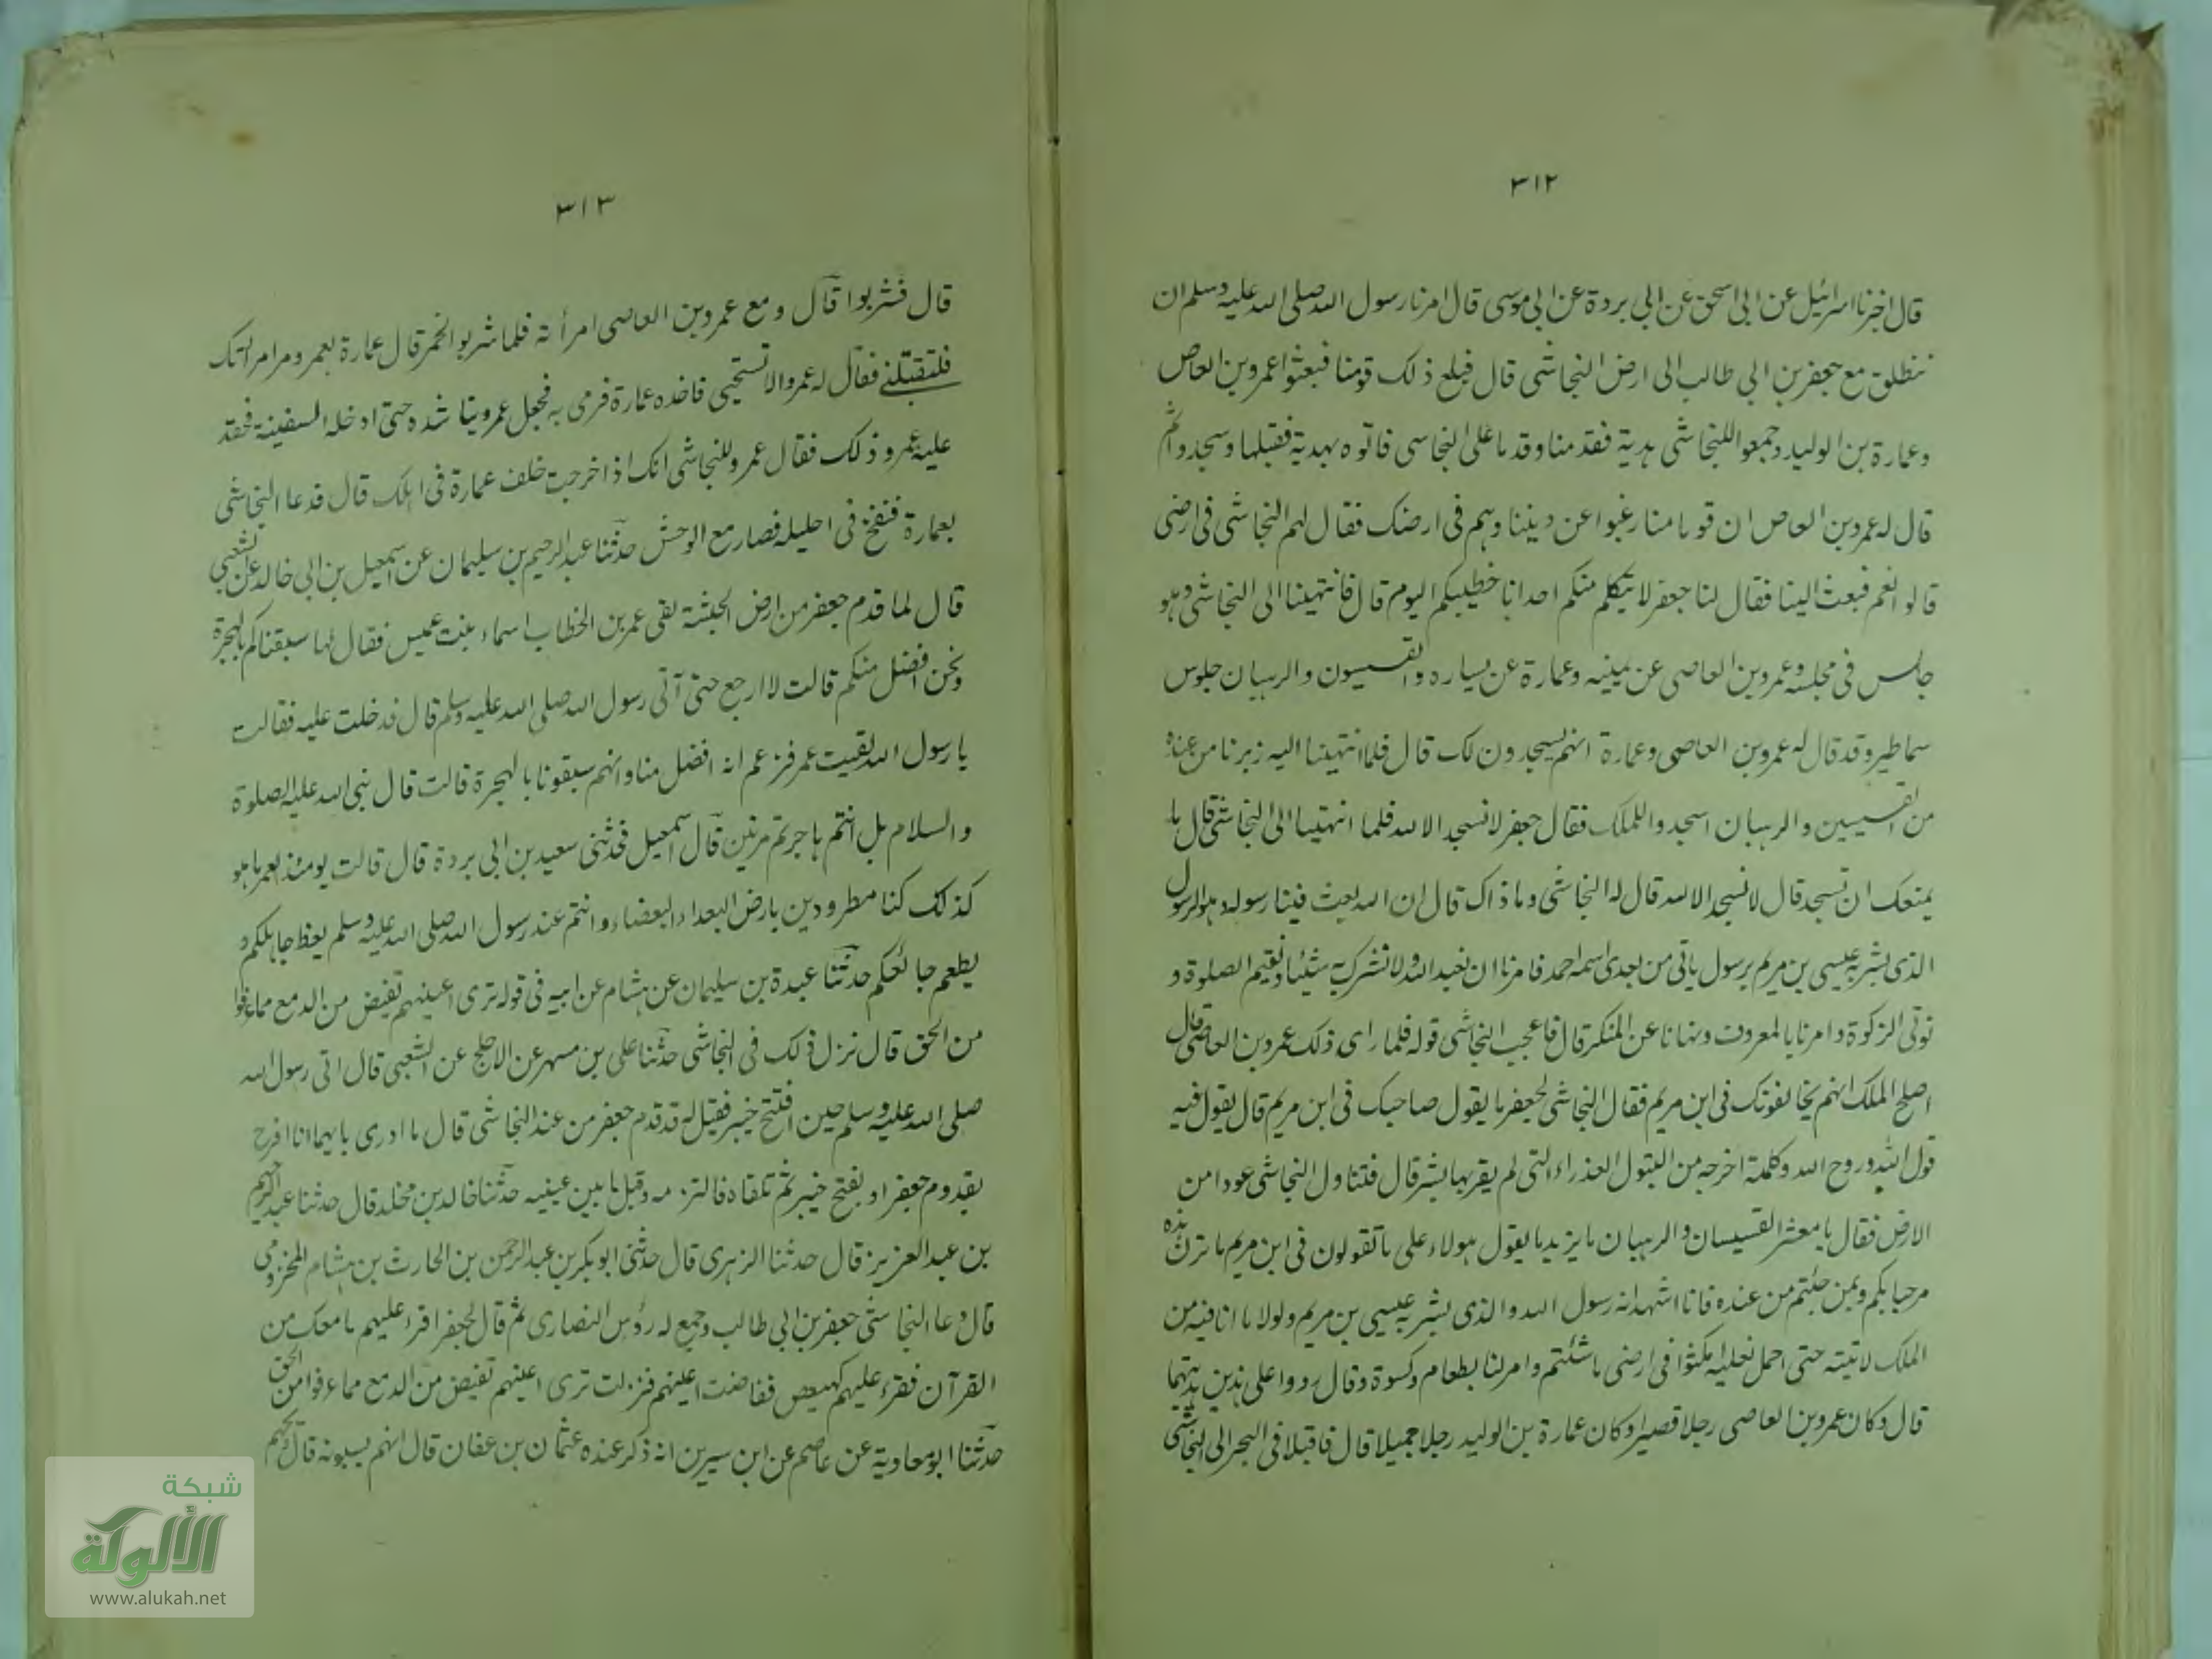 ٣١٢
قال اخبرنا اسرائيل عن ابى اسحق عن ابى بردة عن ابى موسى قال امرنا رسول الله صلى الله عليه وسلم ان
ننطلق مع جعفر بن ابى طالب الى ارض النجاشى قال فبلغ ذلك قومنا فبعثوا عمرو بن العاص
وعمارة بن الوليد وجمعوا للنجاشى هدية فقدمنا وقدما على النجاسى فاتوه بهدية فقبلها وسجدوا ثم
قال له عمرو بن العاص ان قوما منا رغبوا عن ديننا وهم فى ارضك فقال لهم النجاشى فى ارضى
قالوا نعم فبعث الينا فقال لنا جعفر لا يتكلم منكم احد انا خطيبكم اليوم قال فانتهينا الى النجاشى وهو
جالس فى مجلسه وعمرو بن العاصى عن يمينه وعمارة عن يساره والقسيسون والرهبان جلوس
سماطير وقد قال له عمرو بن العاصى وعمارة انهم يسجدون لك قال فلما انتهينا اليه زبرنا من عنده
من القسيسين والرهبان اسجدوا للملك فقال جعفر لا نسجد الا لله فلما انتهينا الى النجاشى قال ما
يمنعك ان تسجد قال لا نسجد الا لله قال له النجاشى وما ذاك قال ان الله بعث فينا رسوله وهو الرسول
الذى بشر به عيسى بن مريم برسول ياتى من بعدى اسمه احمد فامرنا ان نعبد الله ولا نشرك به شيئا ونقيم الصلوة و
نوتى الزكوة وامرنا بالمعروف ونهانا عن المنكر قال فاعجب النجاشى قوله فلما راى ذلك عمرو بن العاصى قال
اصلح الملك انهم يخالفونك فى ابن مريم فقال النجاشى لجعفر ما يقول صاحبك فى ابن مريم قال يقول فيه
قول الله وروح الله وكلمة اخرجه من البتول العذراء التى لم يقربها بشر قال فتناول النجاشى عودا من
الارض فقال يا معشر القسيسان والرهبان ما يزيد ما يقول هولاء على ما تقولون فى ابن مريم ما يزن هذه
مرحبا بكم وبمن جئتم من عنده فانا اشهد انه رسول الله والذى بشر به عيسى بن مريم ولولا ما انا فيه من
الملك لاتيته حتى احمل نعليه امكثوا فى ارضى ما شئتم وامر لنا بطعام وكسوة وقال ردوا على هذين هديتهما
قال وكان عمرو بن العاصى رجلا قصيرا وكان عمارة بن الوليد رجلا جميلا قال فاقبلا فى البحر الى النجاشى
٣١٣
قال فشربوا قال ومع عمرو بن العاصى امرأته فلما شربوا الخمر قال عمارة لعمرو مر امراتك
فلتقبلنى فقال له عمرو الا تستحيى فاخذه عمارة فرمى به فجعل عمرو يناشده حتى ادخله السفينة فحقد
عليه عمرو ذلك فقال عمرو للنجاشى انك اذا خرجت خلف عمارة فى اهلك قال فدعا النجاشى
بعمارة فنفخ فى احليله فصار مع الوحش حدثنا عبد الرحيم بن سليمان عن اسمعيل بن ابى خالد عن الشعبى
قال لما قدم جعفر من ارض الحبشة لقى عمر بن الخطاب اسماء بنت عميس فقال لها سبقناكم بالهجرة
ونحن افضل منكم قالت لا ارجع حتى آتى رسول الله صلى الله عليه وسلم قال فدخلت عليه فقالت
يا رسول الله لقيت عمر فزعم انه افضل منا وانهم سبقونا بالهجرة قالت قال نبى الله عليه الصلوة
والسلام بل انتم هاجرتم مرتين قال اسمعيل فحدثنى سعيد بن ابى بردة قال قالت يومئذ لعمر ما هو
كذلك كنا مطرودين بارض البعداء البغضاء وانتم عند رسول الله صلى الله عليه وسلم يعظ جاهلكم و
يطعم جائعكم حدثنا عبدة بن سليمان عن هشام عن ابيه فى قوله ترى اعينهم تفيض من الدمع مما عرفوا
من الحق قال نزل ذلك فى النجاشى حدثنا على بن مسهر عن الاجلح عن الشعبى قال اتى رسول الله
صلى الله عليه وسلم حين افتتح خيبر فقيل له قد قدم جعفر من عند النجاشى قال ما ادرى بايهما انا افرح
بقدوم جعفر او بفتح خيبر ثم تلقاه فالتزمه وقبل ما بين عينيه حدثنا خالد بن مخلد قال حدثنا عبد الرحيم
بن عبد العزيز قال حدثنا الزهرى قال حدثنى ابو بكر بن عبد الرحمن بن الحارث بن هشام المخزومى
قال دعا النجاشى جعفر بن ابى طالب وجمع له رؤس النصارى ثم قال لجعفر اقرء عليهم ما معك من
القرآن فقرء عليهم كهيعص ففاضت اعينهم فنزلت ترى اعينهم تفيض من الدمع مما عرفوا من الحق
حدثنا ابو معاوية عن عاصم عن ابن سيرين انه ذكر عنده عثمان بن عفان قال انهم يسبونه قال ويحهم
شبكة
الألوكة
www.alukah.net